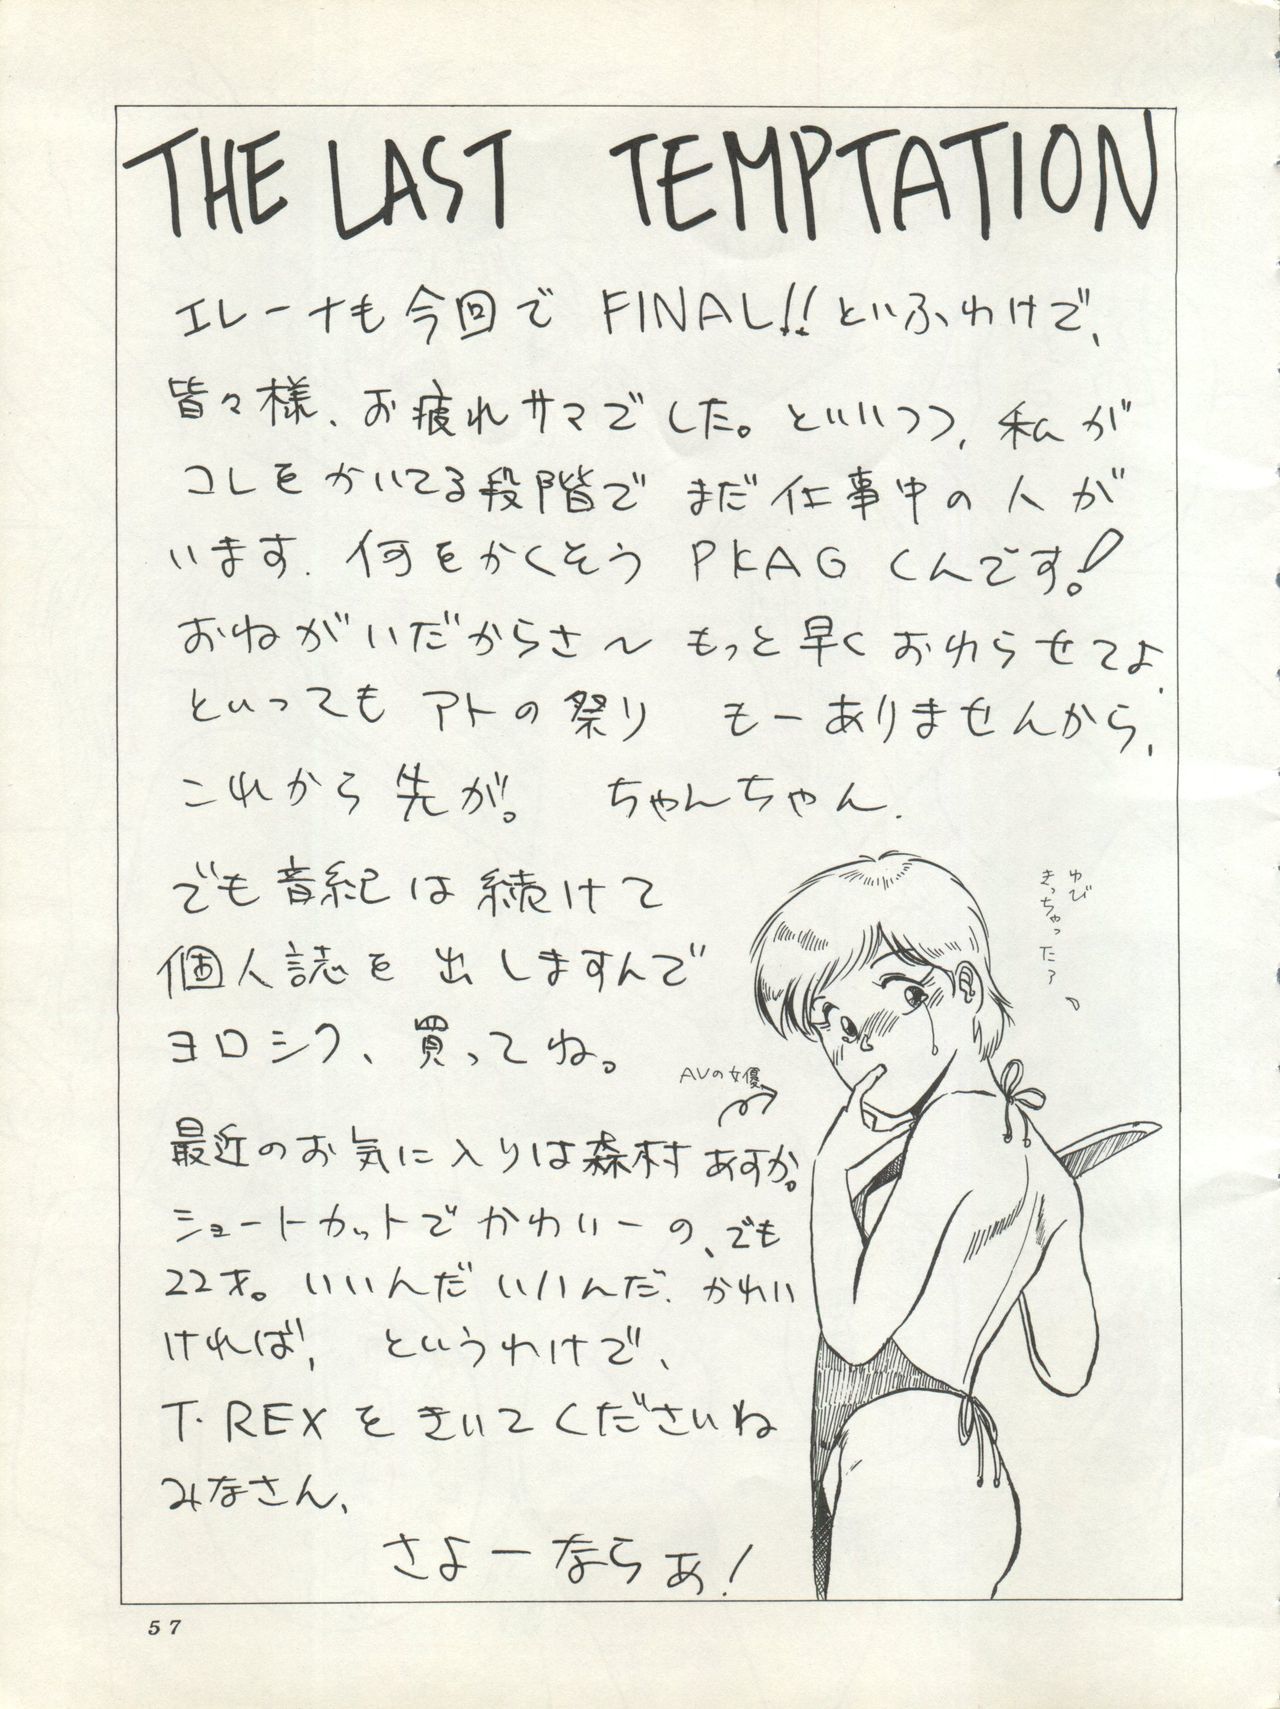 THE LAST TEMPTATION
エレーナも今回で FINAL!! といふわけで、
皆々様、お疲れサマでした。といいつつ、私が
コレをかいてる段階で まだ仕事中の人が
います. 何をかくそう PKAG くんです!
おねがいだからさ〜 もっと早くおわらせてよ.
といってもアトの祭り もーありませんから、
これから先が。 ちゃんちゃん.
でも音紀は続けて
個人誌を出しますんで
ヨロシク、買ってね。
ゆび
きっちゃったァ
AVの女優
最近のお気に入りは森村あすか。
ショートカットでかわいーの、でも
22才。いいんだいいんだ. かわい
ければ、 というわけで、
T・REXをきいてくださいね
みなさん、
さよーならぁ!
57